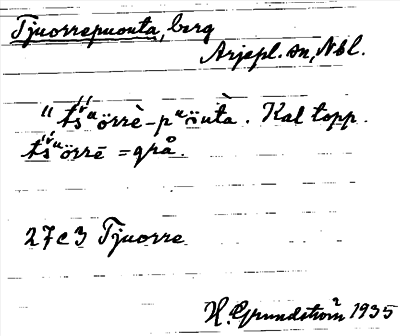 Tjuorrepuouta, berg
Arjepl. sn, Nbl.
"tśᵘörrè-pᵘöutà. Kal topp.
tśᵘörrē = grå.
27c3 Tjuorre
H. Grundström 1935